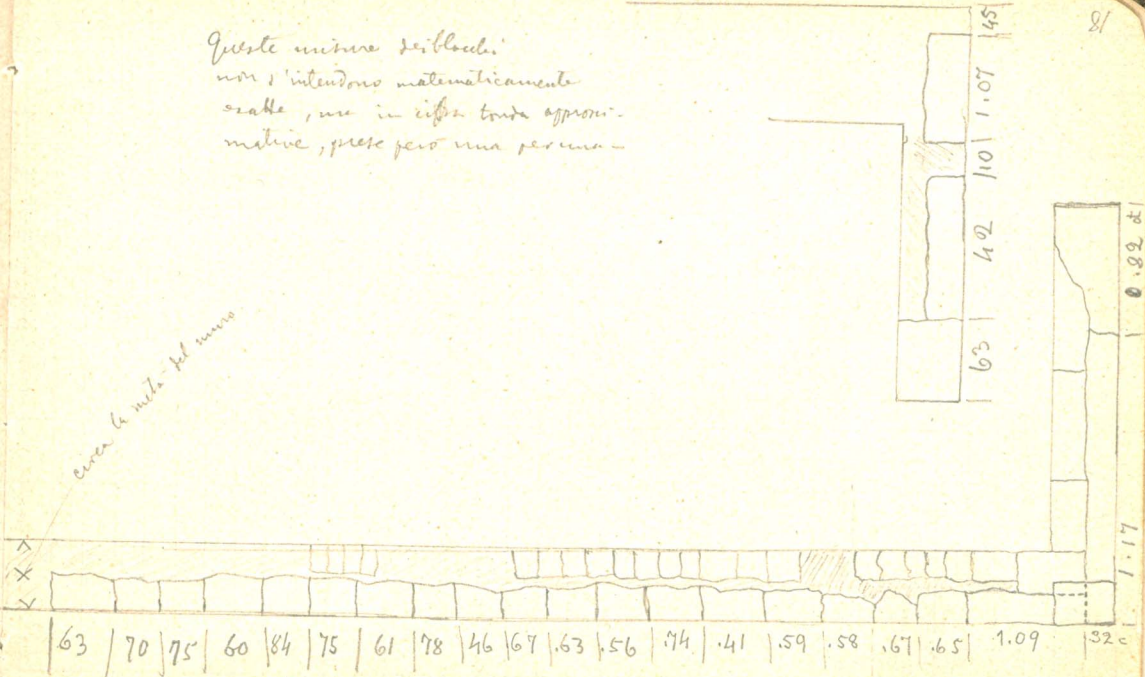 81
Queste misure dei blocchi
non s'intendono matematicamente
esatte, ma in cifra tonda approssi-
mative, prese però una per una -
45
1.07
10
42
63
0.82 d
1.17
circa la metà del muro
63 70 75 60 84 75 61 78 46 67 .63 .56 .74 .41 .59 .58 .67 .65 1.09 32 c